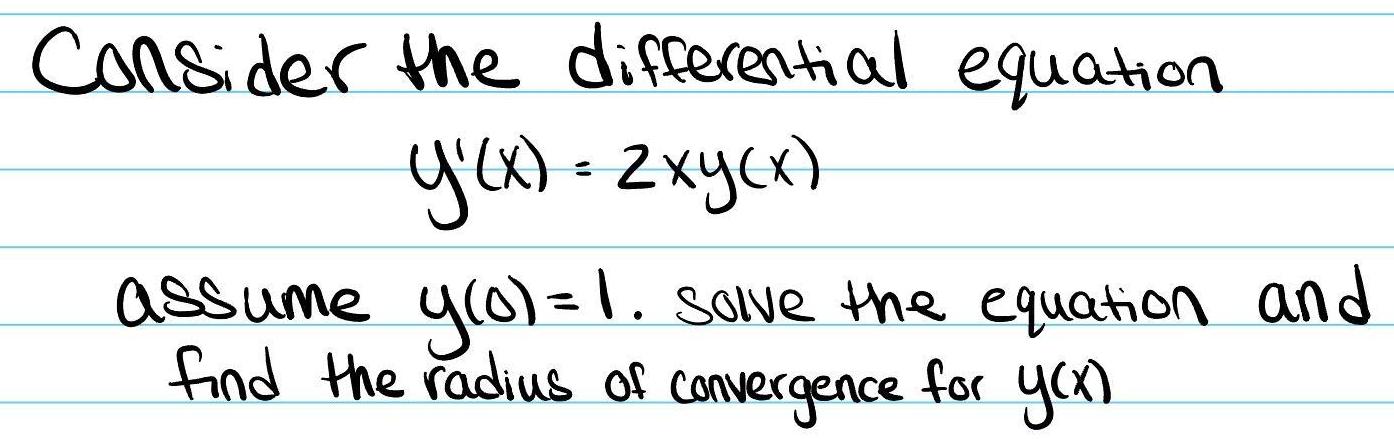 Consider the differential equation
y'(x) = 2xy(x)
assume y(0)=1. solve the equation and
find the radius of convergence for y(x)